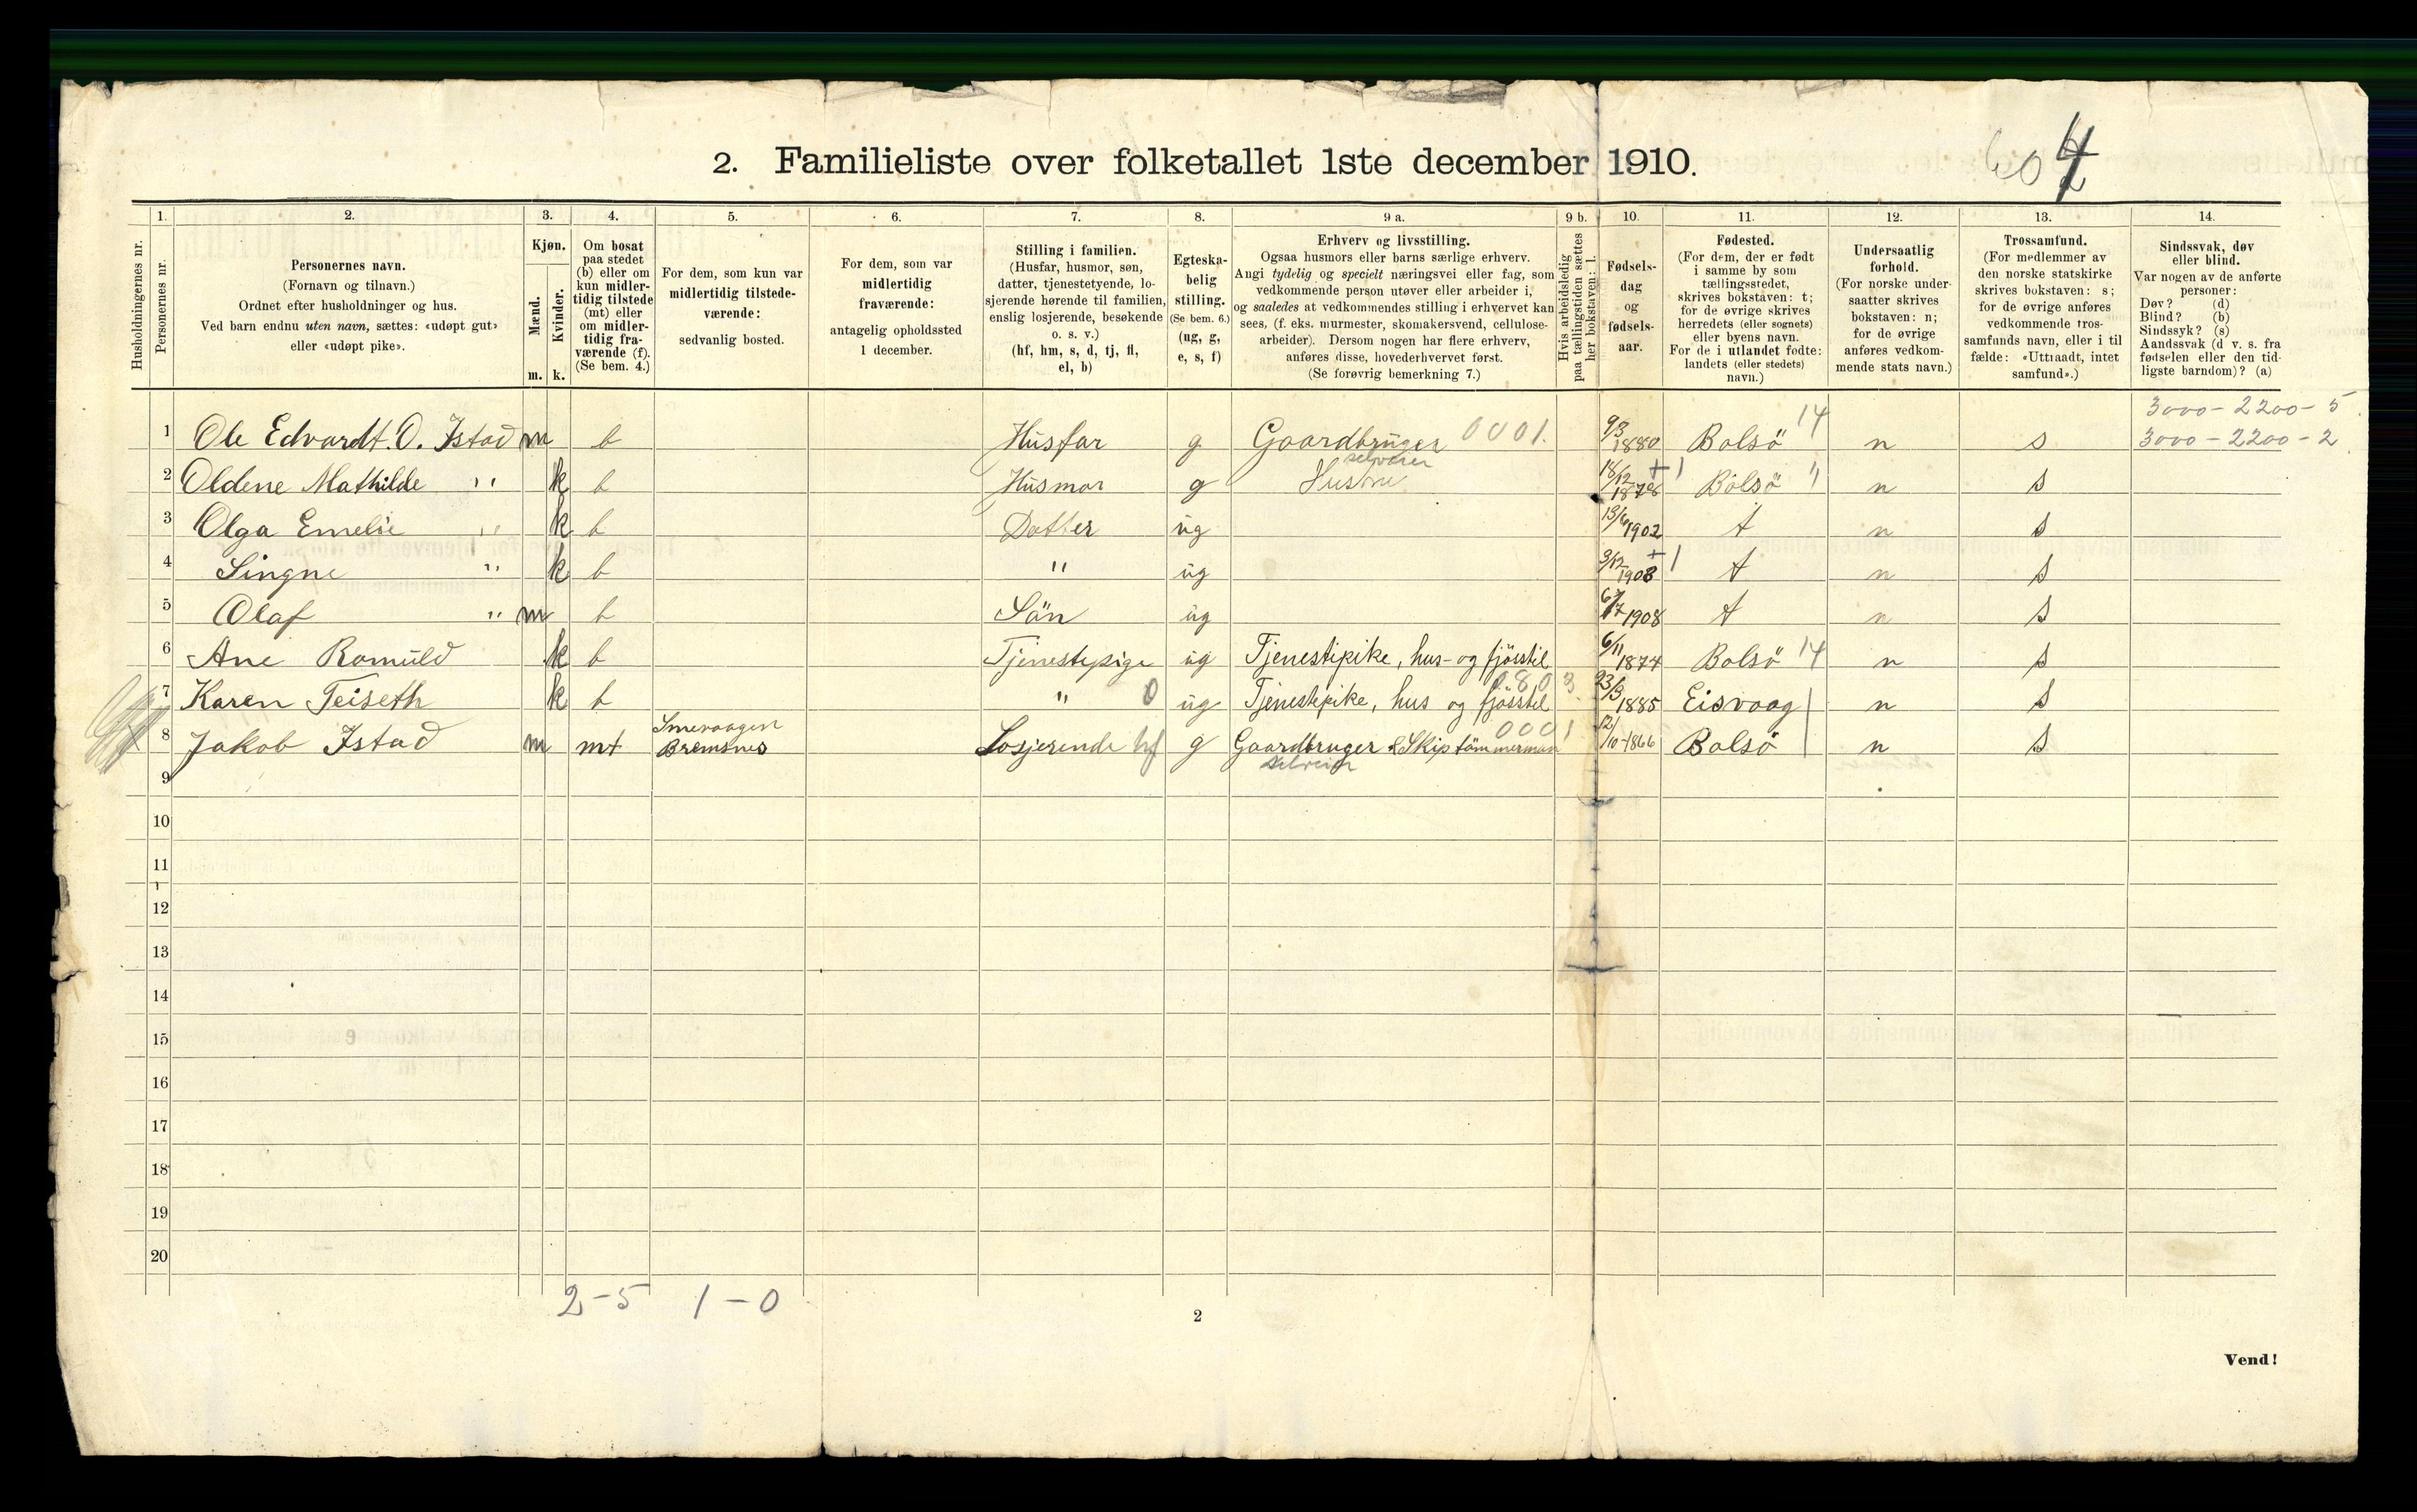 2. Familieliste over folketallet 1ste december 1910.
1. 2. 3. 4. 5. 6. 7. 8. 9 a. 9 b. 10. 11. 12. 13. 14.
Husholdningernes nr.
Personernes nr.
Personernes navn.
(Fornavn og tilnavn.)
Ordnet efter husholdninger og hus.
Ved barn endnu uten navn, sættes: «udøpt gut»
eller «udøpt pike».
Kjøn.
Mænd.
Kvinder.
m. k.
Om bosat
paa stedet
(b) eller om
kun midler-
tidig tilstede
(mt) eller
om midler-
tidig fra-
værende (f).
(Se bem. 4.)
For dem, som kun var
midlertidig tilstede-
værende:
sedvanlig bosted.
For dem, som var
midlertidig
fraværende:
antagelig opholdssted
1 december.
Stilling i familien.
(Husfar, husmor, søn,
datter, tjenestetyende, lo-
sjerende hørende til familien,
enslig losjerende, besøkende
o. s. v.)
(hf, hm, s, d, tj, fl,
el, b)
Egteska-
belig
stilling.
(Se bem. 6.)
(ug, g,
e, s, f)
Erhverv og livsstilling.
Ogsaa husmors eller barns særlige erhverv.
Angi tydelig og specielt næringsvei eller fag, som
vedkommende person utøver eller arbeider i,
og saaledes at vedkommendes stilling i erhvervet kan
sees, (f. eks. murmester, skomakersvend, cellulose-
arbeider). Dersom nogen har flere erhverv,
anføres disse, hovederhvervet først.
(Se forøvrig bemerkning 7.)
Hvis arbeidsledig
paa tællingstiden sættes
her bokstaven: l.
Fødsels-
dag
og
fødsels-
aar.
Fødested.
(For dem, der er født
i samme by som
tællingsstedet,
skrives bokstaven: t;
for de øvrige skrives
herredets (eller sognets)
eller byens navn.
For de i utlandet fødte:
landets (eller stedets)
navn.)
Undersaatlig
forhold.
(For norske under-
saatter skrives
bokstaven: n;
for de øvrige
anføres vedkom-
mende stats navn.)
Trossamfund.
(For medlemmer av
den norske statskirke
skrives bokstaven: s;
for de øvrige anføres
vedkommende tros-
samfunds navn, eller i til
fælde: «Uttraadt, intet
samfund».)
Sindssvak, døv
eller blind.
Var nogen av de anførte
personer:
Døv? (d)
Blind? (b)
Sindssyk? (s)
Aandssvak (d v. s. fra
fødselen eller den tid-
ligste barndom)? (a)
3000 - 2200 - 5
1 Ole Edvardt. O. Istad m b Husfar g Gaardbruger 0001. 9/3 1880 Bolsö 14 n s 3000 - 2200 - 2
selveier
2 Oldene Mathilde " k b Husmor g Hustru 18/12 1878 Bolsö " n s
3 Olga Emelie " k b Datter ug 13/6 1902 t n s
4 Singne " k b " ug 3/12 1903 t n s
5 Olaf " m b Sön ug 1908 t n s
6 Ane Romuld k b Tjenestepige ug Tjenestipike, hus- og fjösstel 6/11 1874 Bolsö 14 n s
0803
7 Karen Teiseth k b " 0 ug Tjenestepike, hus og fjösstel 23/3 1885 Eisvaag n s
0001
8 Jakob Istad m mt Bremsnes Losjerende hf g Gaardbruger & Skiptömmerman 12/10-1866 Bolsö n s
selveier
9
10
11
12
13
14
15
16
17
18
19
20
2-5 1-0
2
Vend!